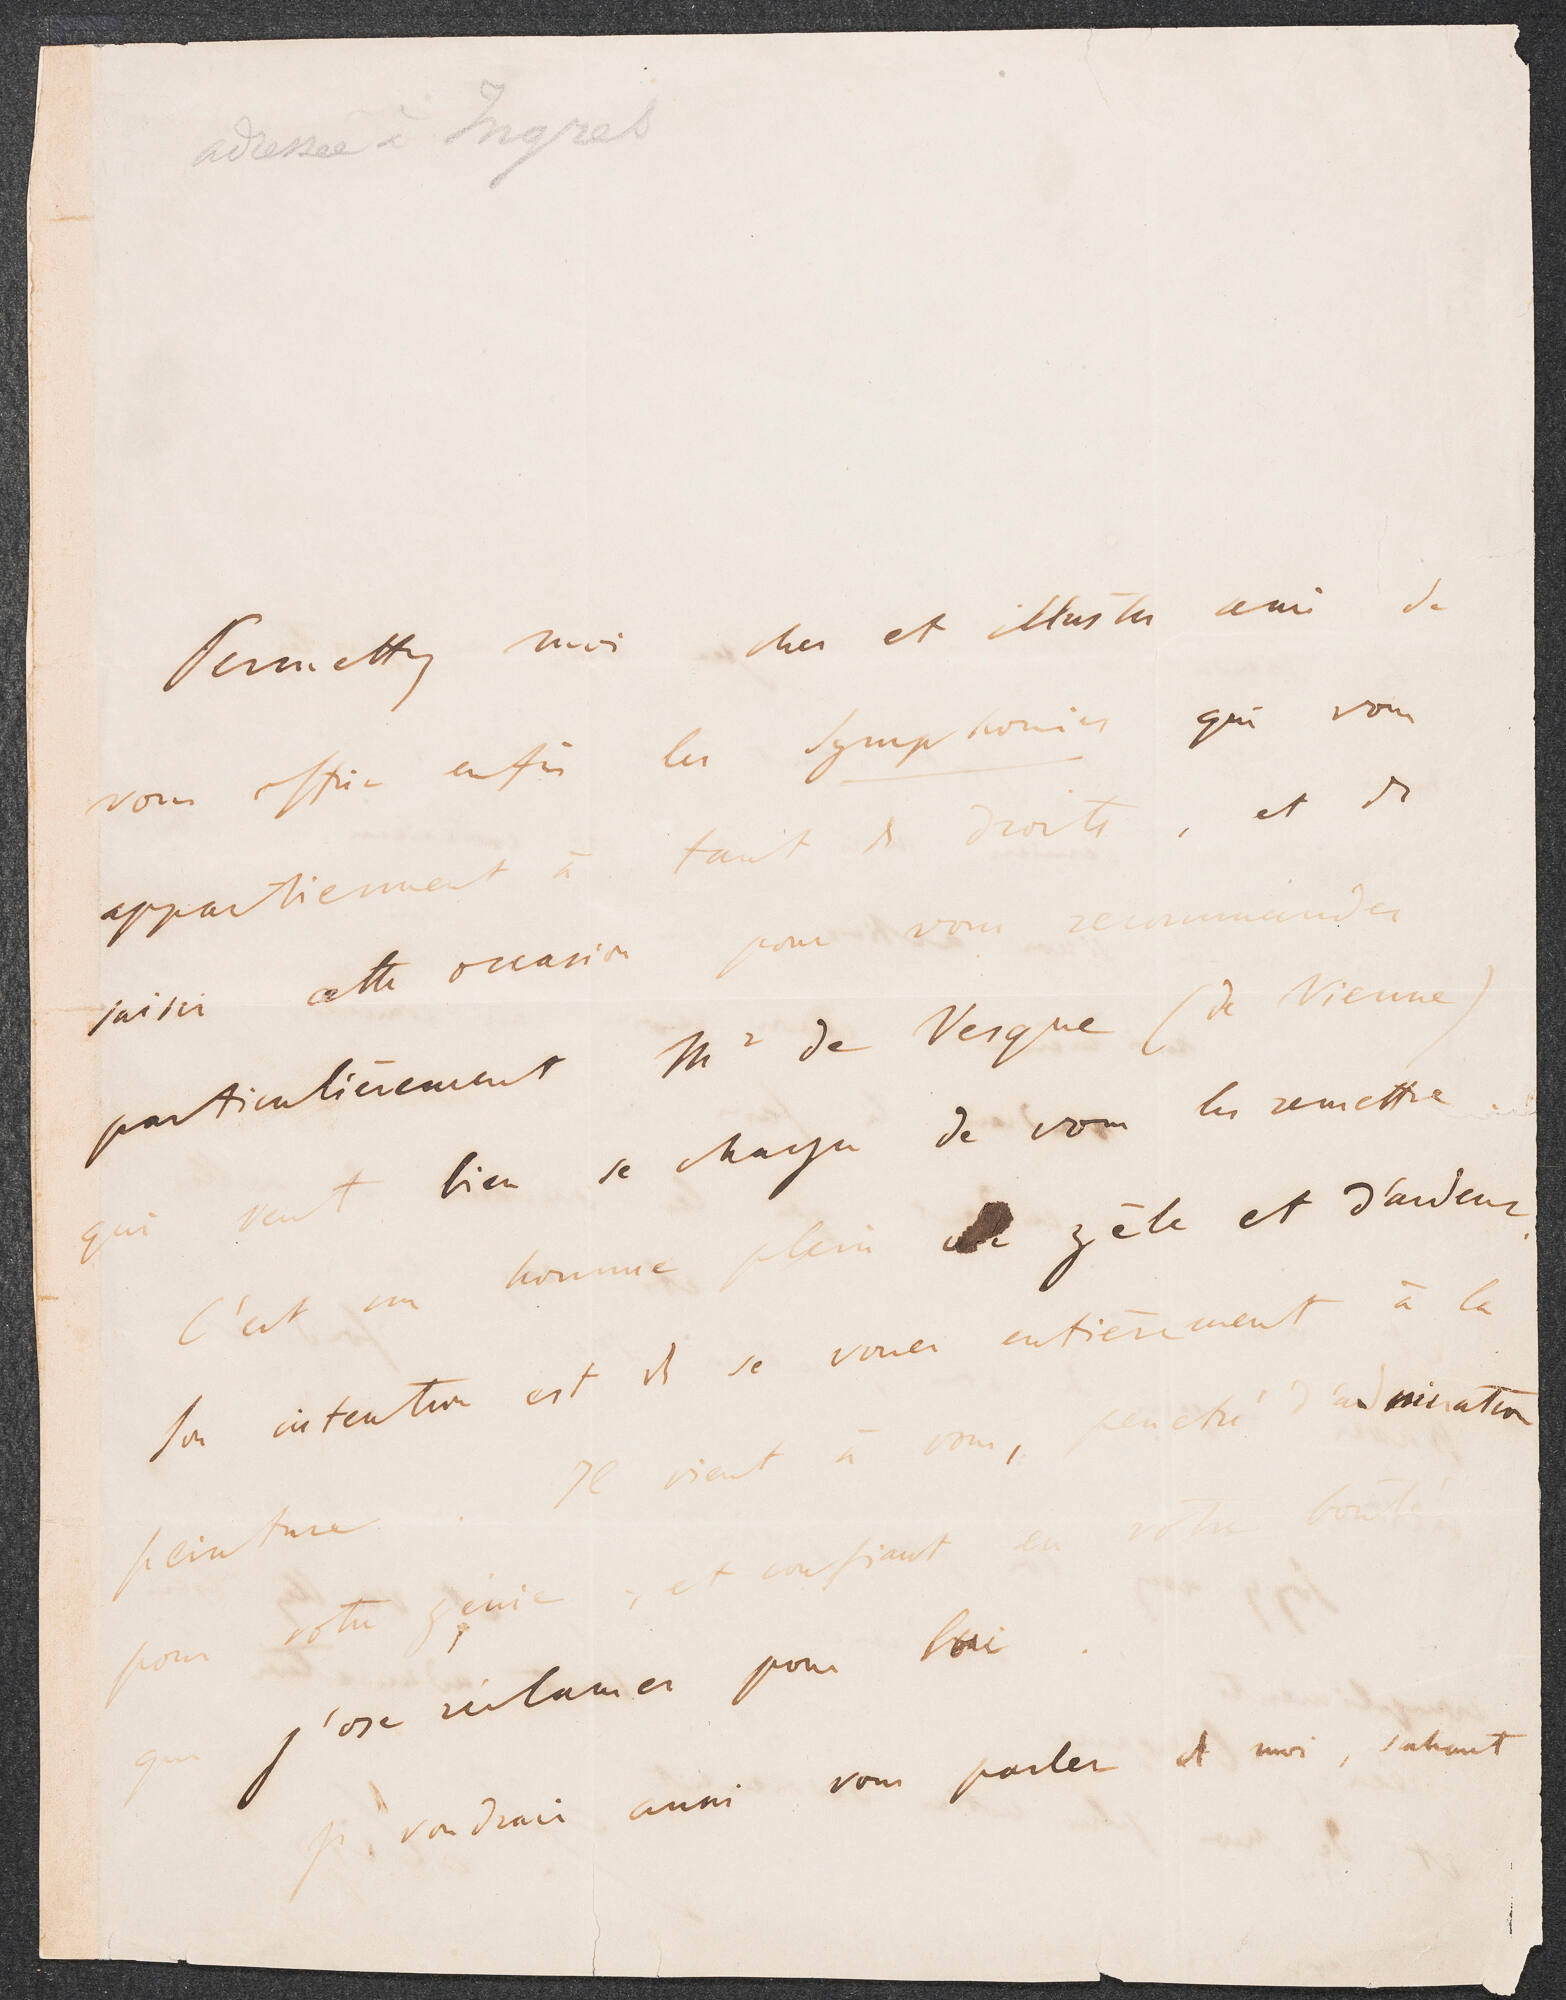 adressée à Ingres
Permettez moi cher et illustre ami de
vous offrir enfin les Symphonies qui vous
appartiennent à tant de droits, et de
saisir cette occasion pour vous recommander
particulièrement Mr de Vesque (de Vienne)
qui veut bien se charger de vous les remettre.
C'est un homme plein de zèle et d'ardeur.
Son intention est de se vouer entièrement à la
peinture. Il vient à vous, pénétré d'admiration
pour votre génie, et confiant en votre bonté
que j'ose réclamer pour lui.
Je voudrais aussi vous parler de moi, sachant